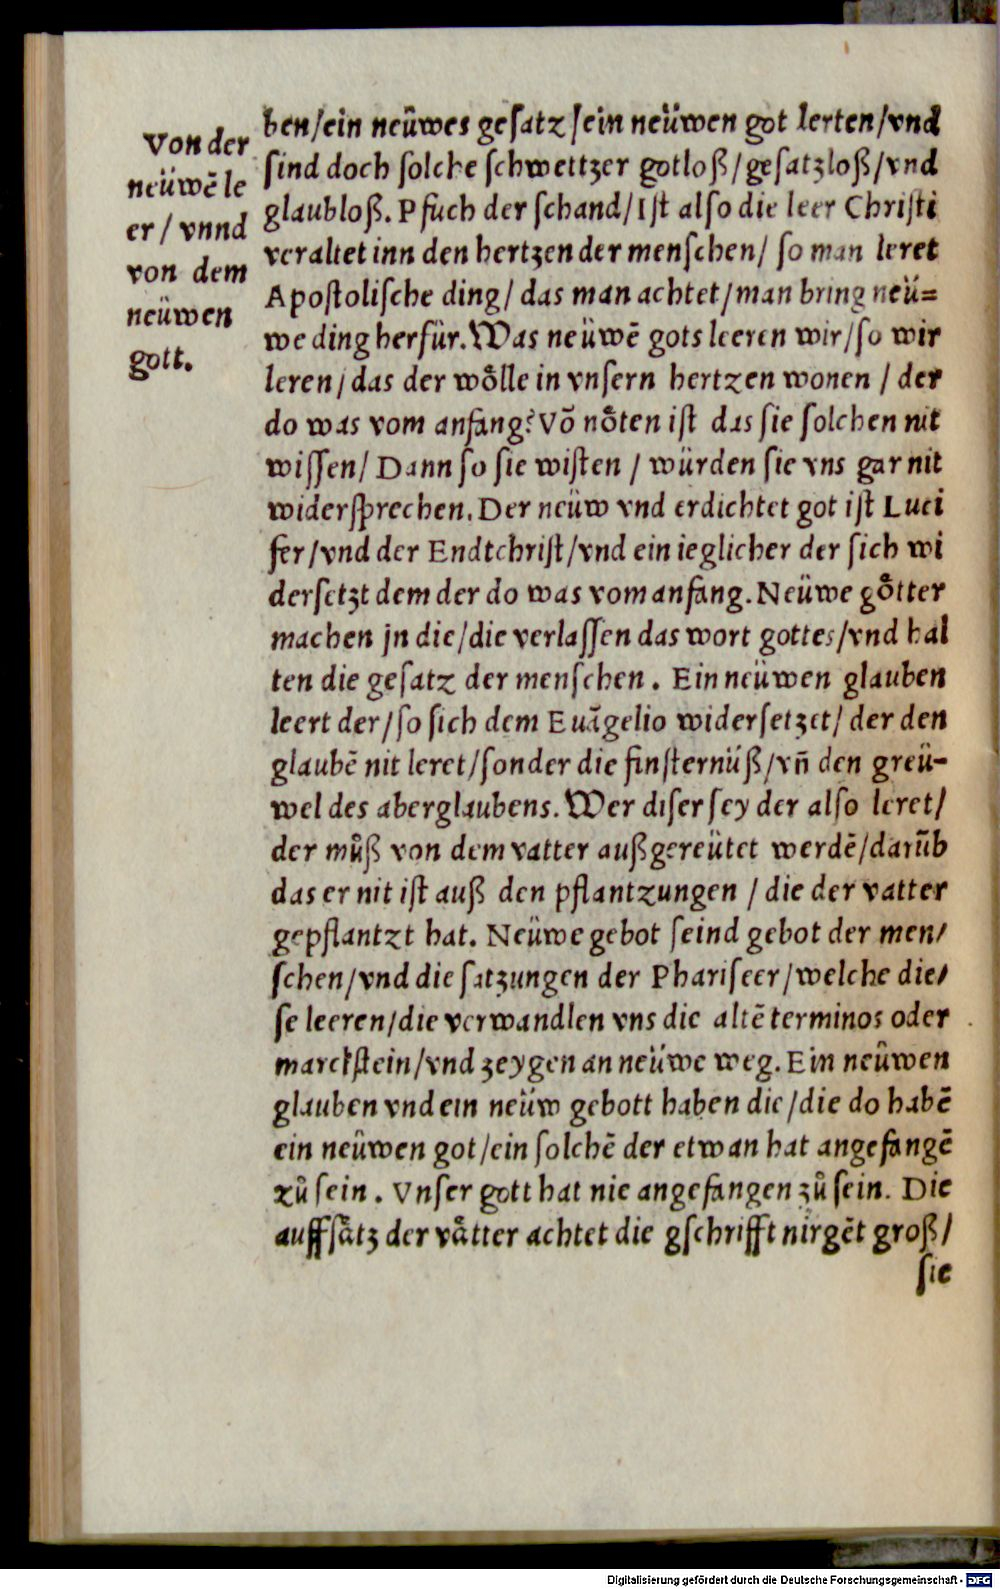 Von der
neüwē le
er / vnnd
von dem
neüwen
gott.
ben/ein neüwes gesatz/ein neüwen got lerten/vnd
sind doch solche schwettzer gotloß/gesatzloß/vnd
glaubloß. Pfuch der schand/Ist also die leer Christi
veraltet inn den hertzen der menschen/ so man leret
Apostolische ding/ das man achtet/man bring neü=
we ding herfür. Was neüwē gots leeren wir/so wir
leren/das der wo̊lle in vnsern hertzen wonen / der
do was vom anfang? Võ no̊ten ist das sie solchen nit
wissen/ Dann so sie wisten / würden sie vns gar nit
widersprechen. Der neüw vnd erdichtet got ist Luci
fer/vnd der Endtchrist/vnd ein ieglicher der sich wi
dersetzt dem der do was vom anfang. Neüwe go̊tter
machen jn die/die verlassen das wort gottes/vnd hal
ten die gesatz der menschen . Ein neüwen glauben
leert der/so sich dem Euãgelio widersetzet/ der den
glaubē nit leret/sonder die finsternüß/vñ den greü-
wel des aberglaubens. Wer diser sey der also leret/
der můß von dem vatter außgereütet werdē/darũb
das er nit ist auß den pflantzungen / die der vatter
gepflantzt hat. Neüwe gebot seind gebot der men/
schen/vnd die satzungen der Phariseer/welche die/
se leeren/die verwandlen vns die altē terminos oder
marckstein/vnd zeygen an neüwe weg. Ein neüwen
glauben vnd ein neüw gebott haben die/die do habē
ein neüwen got/ein solchē der etwan hat angefangē
zů sein . Vnser gott hat nie angefangen zů sein. Die
auffsåtz der våtter achtet die gschrifft nirgēt groß/
sie
Digitalisierung gefördert durch die Deutsche Forschungsgemeinschaft - DFG